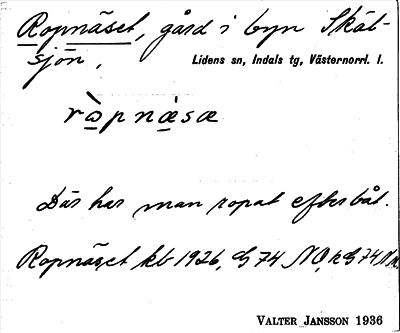 Ropnäset, gård i byn Skät-
sjön,
Lidens sn, Indals tg, Västernorrl. l.
rɷ̀pnæ̀sæ
Där har man ropat efter båt.
Ropnäset kb 1926, G 74 NO, k G 74 
VALTER JANSSON 1936